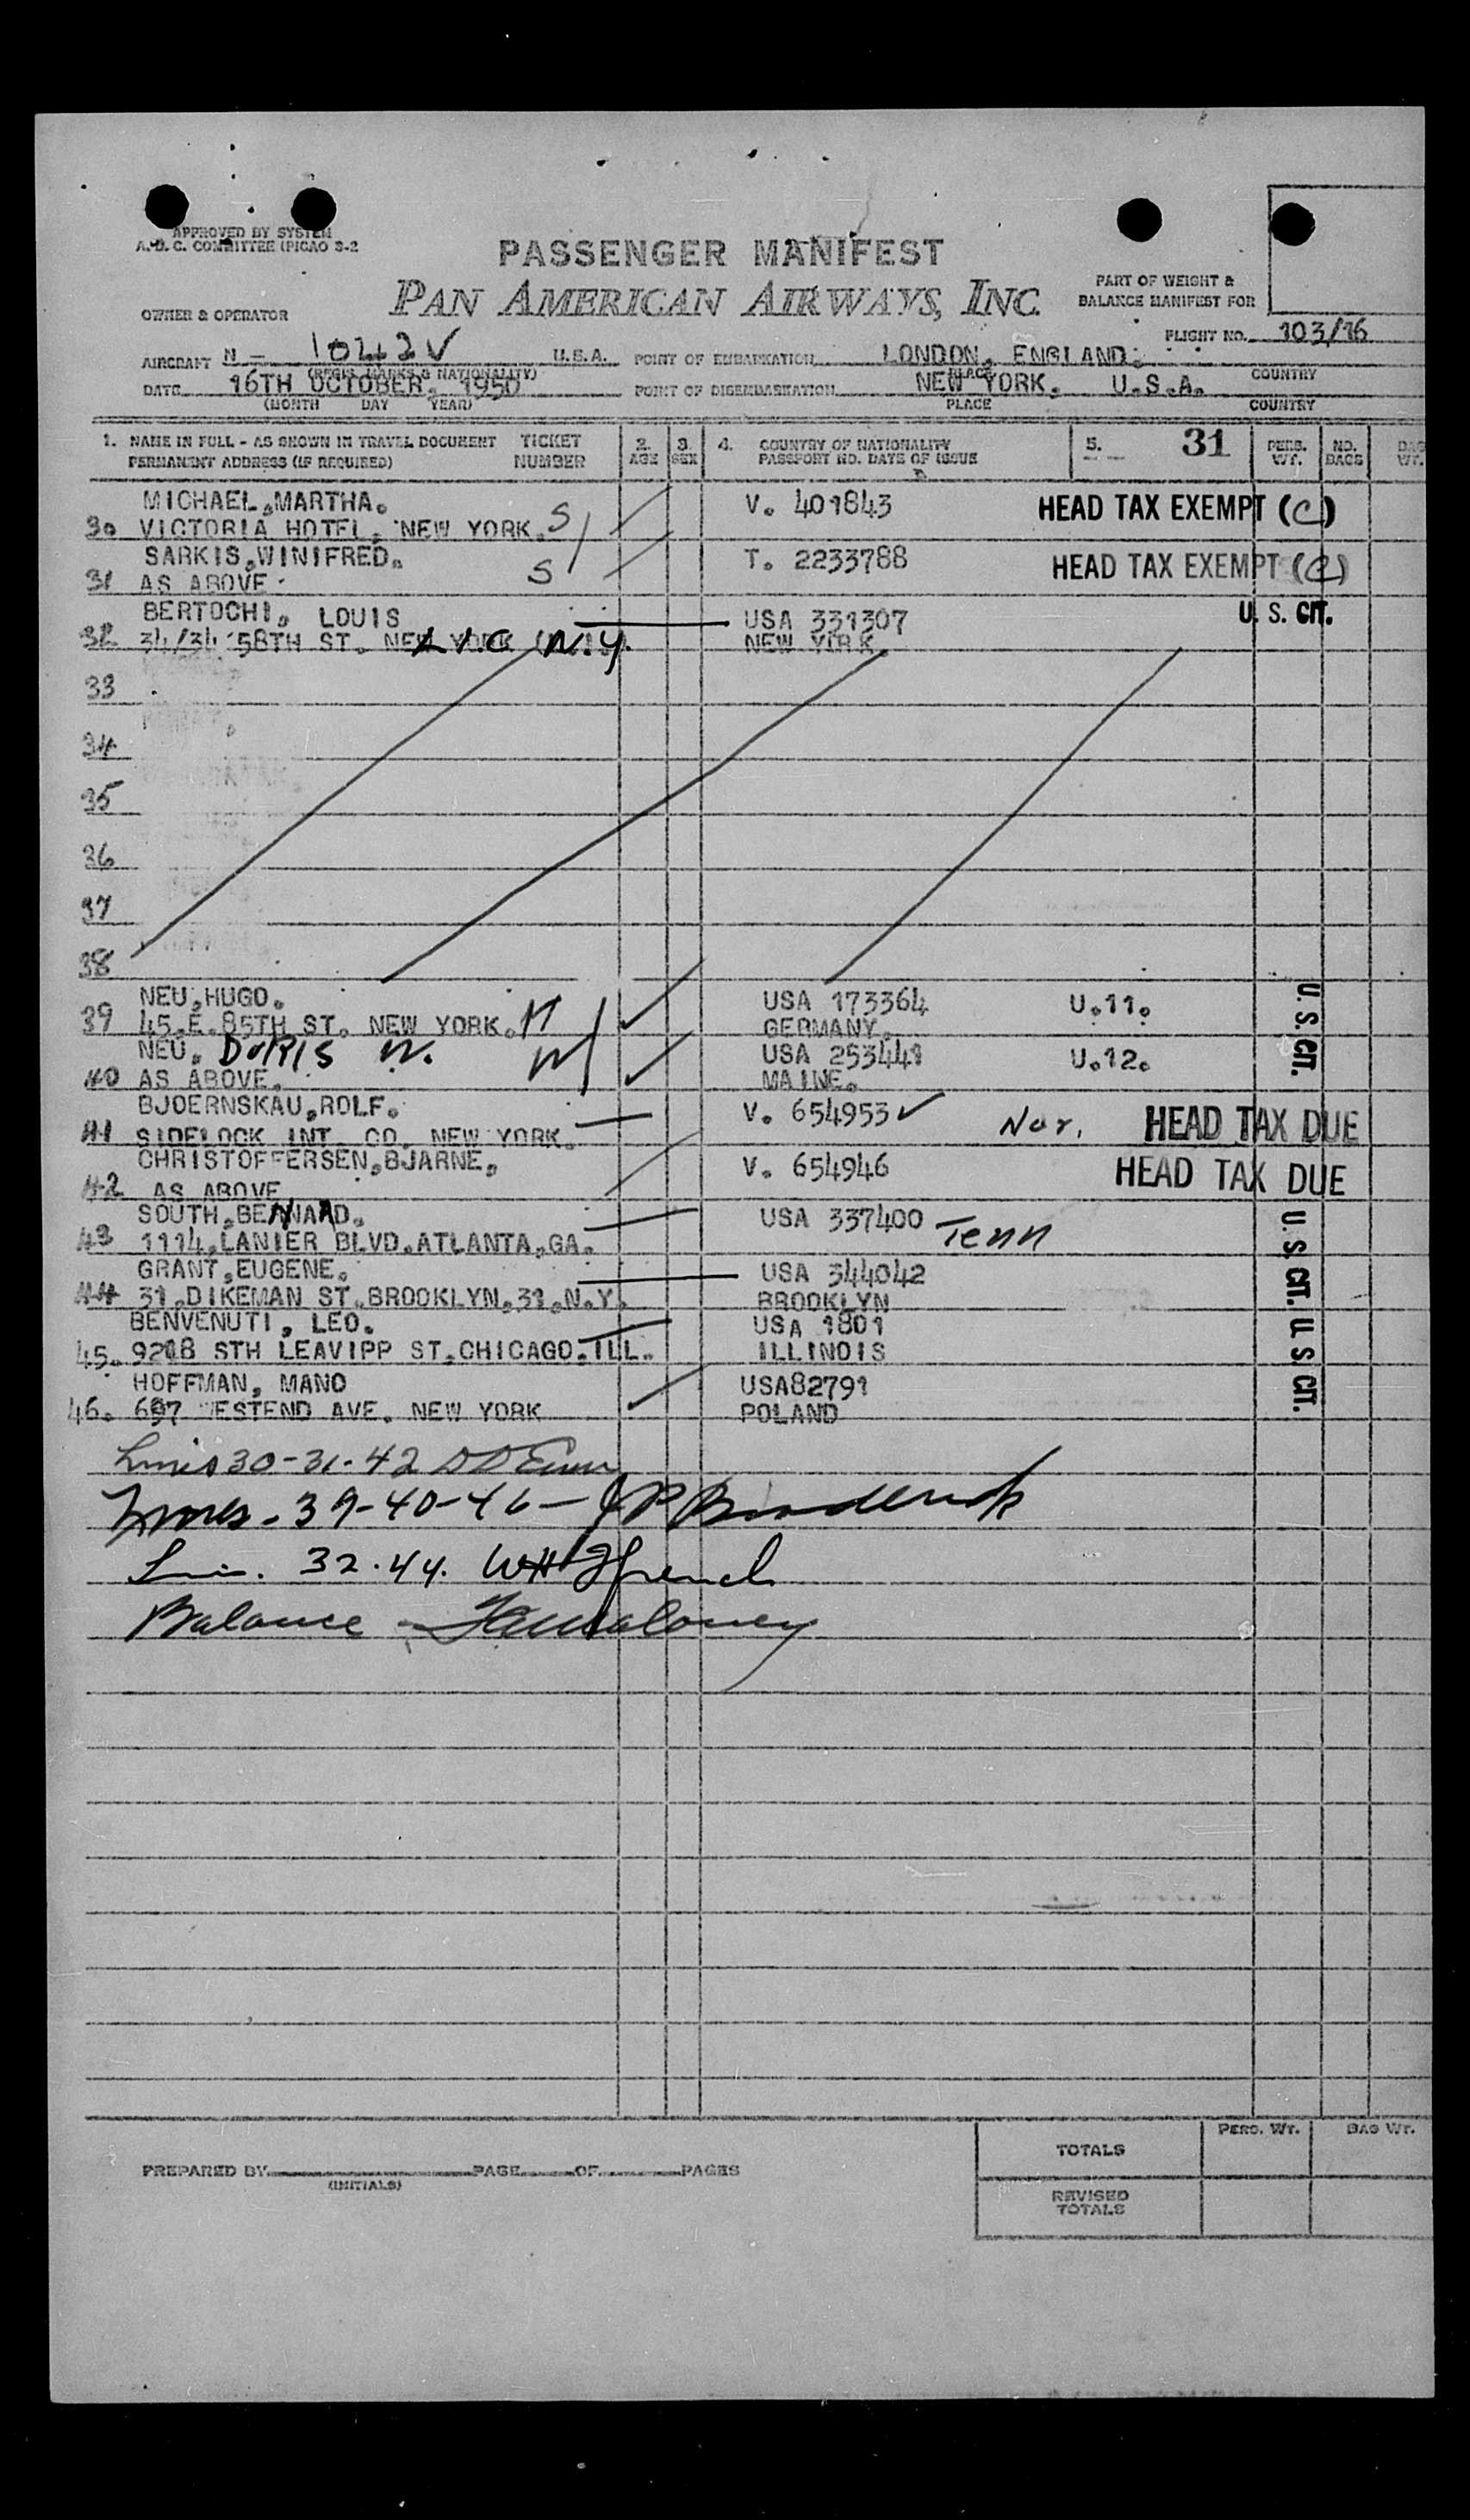 APPROVED BY SYSTEM
A.D.C. COMMITTEE (PICAO S-2
PASSENGER MANIFEST
PAN AMERICAN AIRWAYS, INC.
PART OF WEIGHT &
BALANCE MANIFEST FOR
OWNER & OPERATOR
FLIGHT NO. 103/16
AIRCRAFT N - 1042V U.S.A. POINT OF EMBARKATION LONDON, ENGLAND.
(REGIS. MARKS & NATIONALITY) PLACE COUNTRY
DATE 16TH OCTOBER, 1950 POINT OF DISEMBARKATION NEW YORK, U.S.A.
(MONTH DAY YEAR) PLACE COUNTRY
1. NAME IN FULL - AS SHOWN IN TRAVEL DOCUMENT TICKET 2. 3. 4. COUNTRY OF NATIONALITY 5. 31 PERS. NO. BAG
PERMANENT ADDRESS (IF REQUIRED) NUMBER AGE SEX PASSPORT NO. DATE OF ISSUE WT. BAGS WT.
MICHAEL,MARTHA. V. 401843 HEAD TAX EXEMPT (C)
30 VICTORIA HOTEL, NEW YORK. S
SARKIS,WINIFRED. T. 2233788 HEAD TAX EXEMPT (C)
31 AS ABOVE. S
BERTOCHI, LOUIS USA 331307 U. S. CIT.
32 34/34 58TH ST. NEW YORK L.I.C. N.Y. NEW YIRK.
33
34
35
36
37
38
NEU,HUGO. USA 173364 U.11. U. S. CIT.
39 45.E.85TH ST. NEW YORK. M GERMANY.
NEU. DORIS W. USA 253441 U.12.
40 AS ABOVE. W MAINE.
BJOERNSKAU,ROLF. V. 654953 Nor. HEAD TAX DUE
41 SIDELOCK INT. CO. NEW YORK.
CHRISTOFFERSEN,BJARNE, V. 654946 HEAD TAX DUE
42 AS ABOVE
SOUTH,BERNARD. USA 337400 Tenn U. S. CIT.
43 1114,LANIER BLVD.ATLANTA,GA.
GRANT,EUGENE. USA 344042
44 31.DIKEMAN ST.BROOKLYN,31.N.Y. BROOKLYN
BENVENUTI, LEO. USA 1801 U. S. CIT.
45. 9218 STH LEAVIPP ST.CHICAGO.ILL. ILLINOIS
HOFFMAN, MANO USA82791
46. 697 WESTEND AVE. NEW YORK POLAND
Lines 30-31-42
Lines - 39-40-46 - JP Broderick
Lin. 32.44. WH French
Balance - Maloney
TOTALS PERS. WT. BAG WT.
PREPARED BY PAGE OF PAGES
(INITIALS)
REVISED
TOTALS